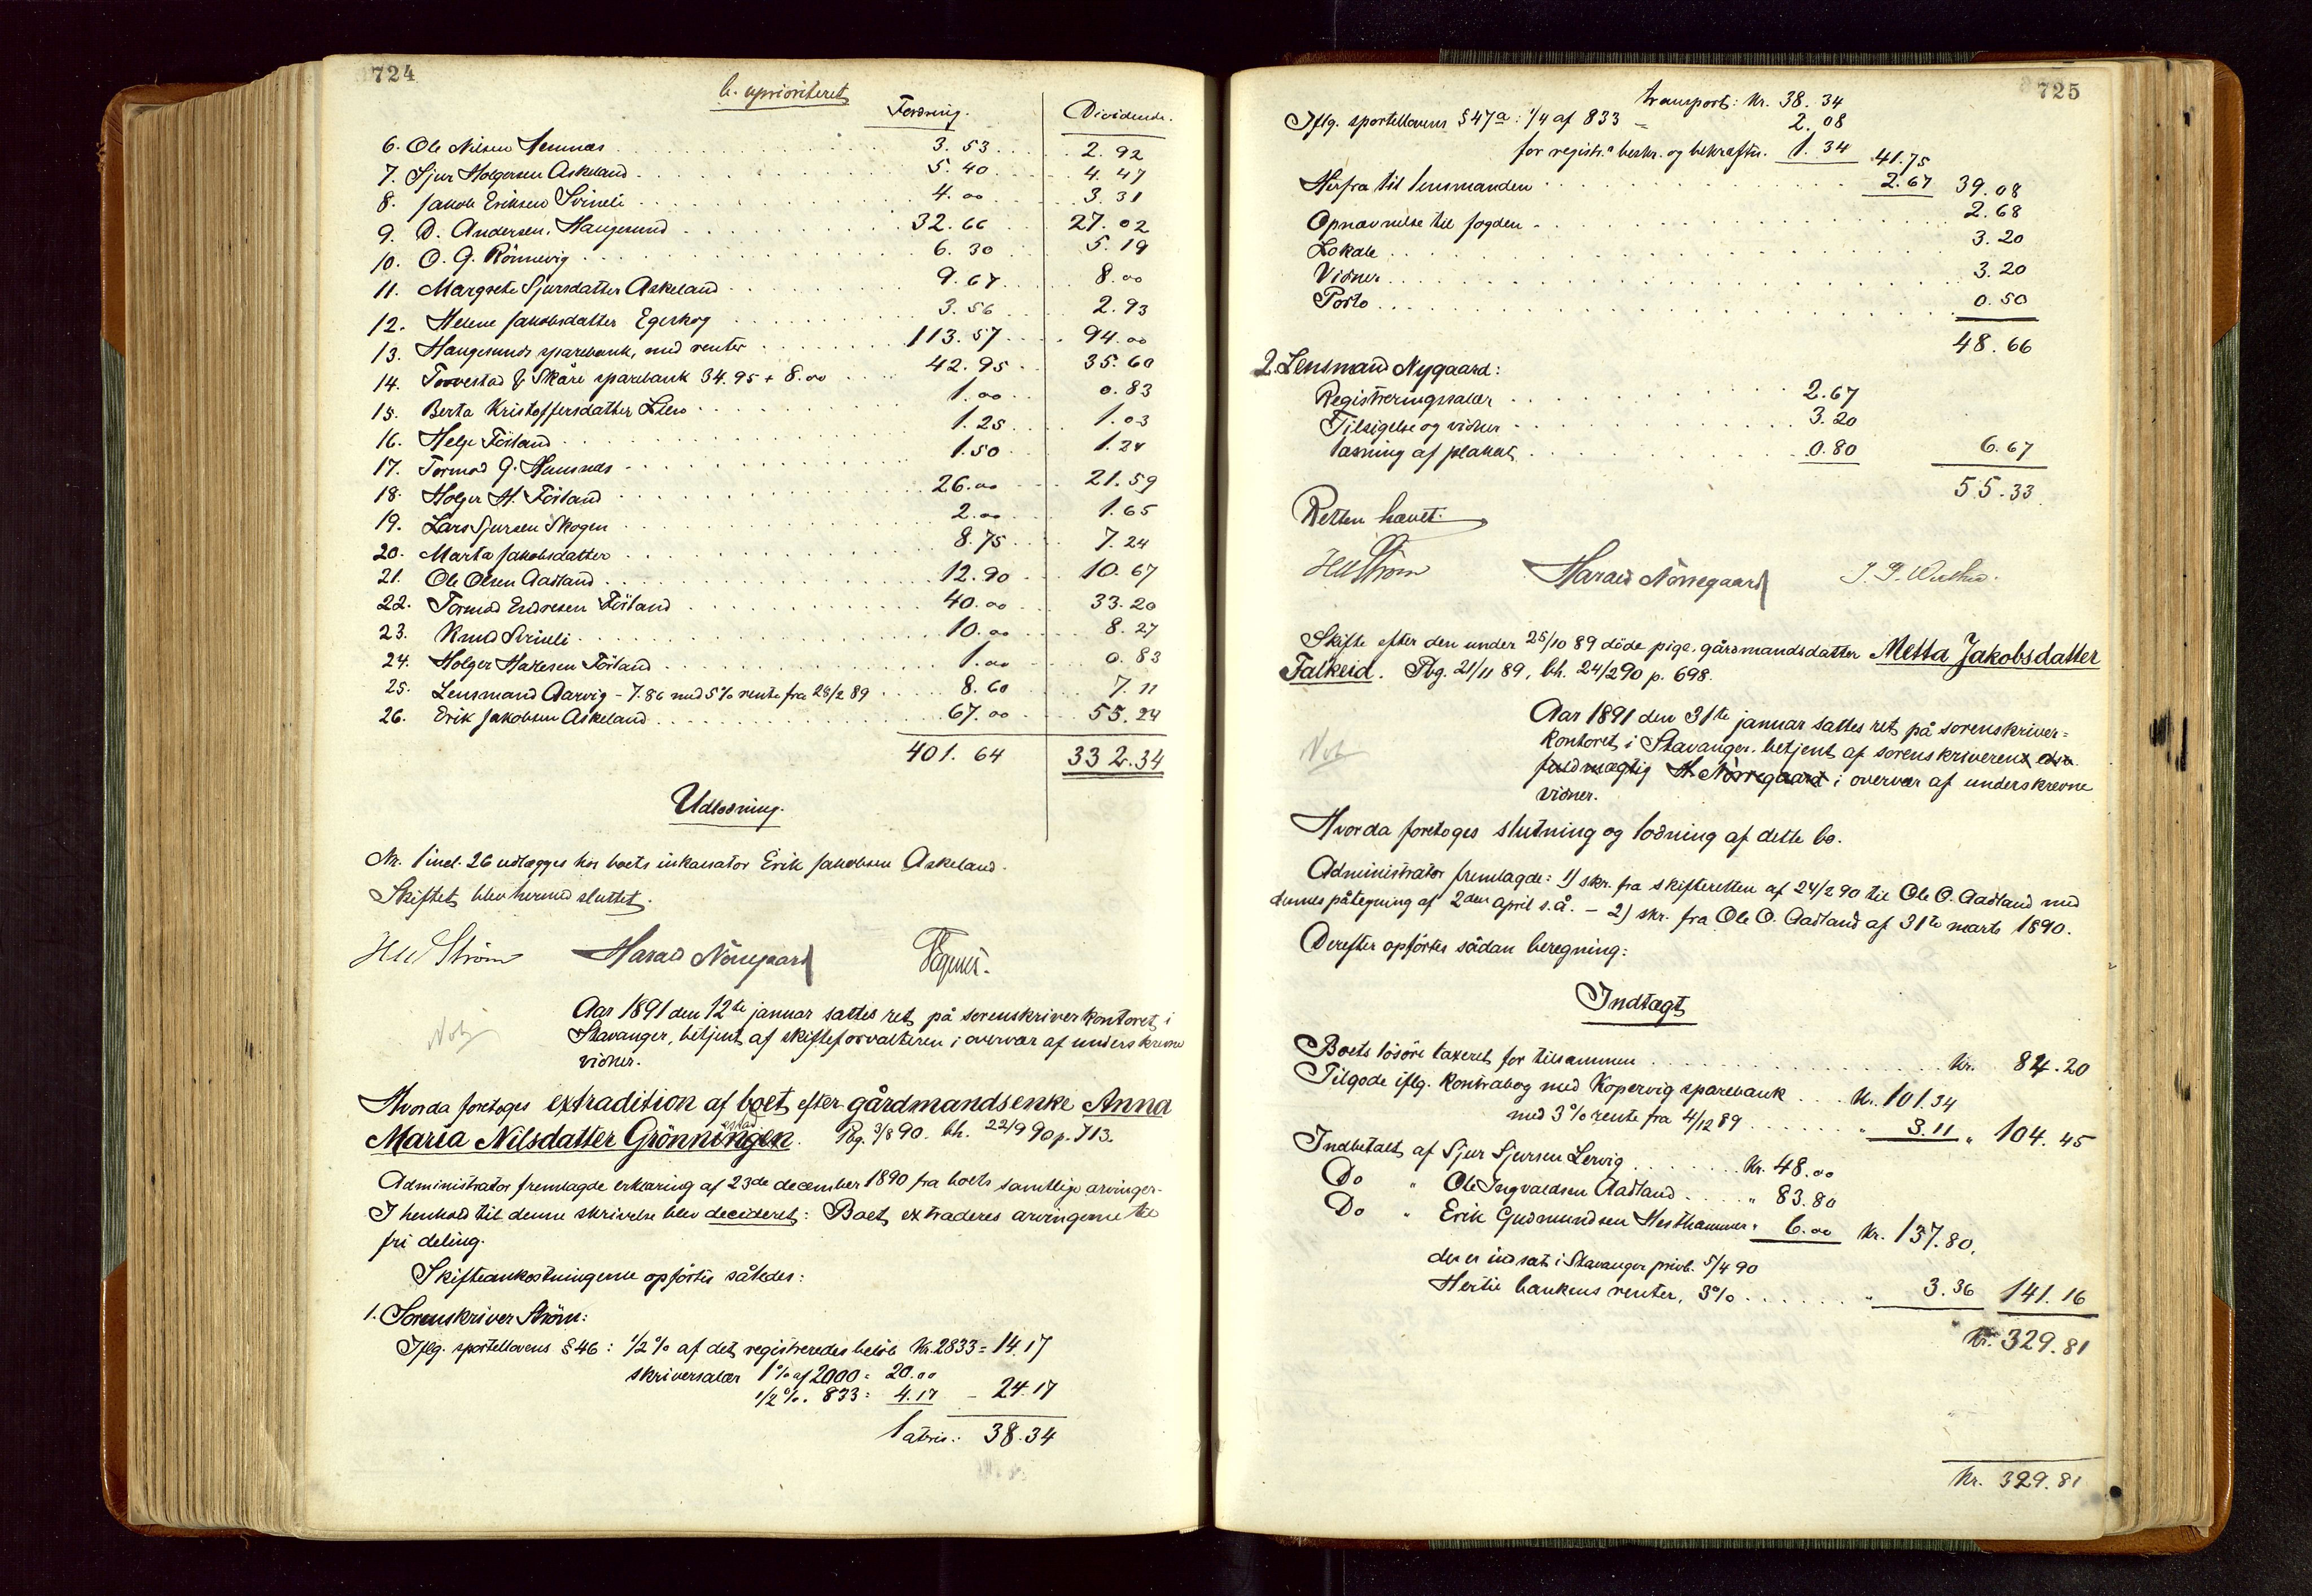 724
b. uprioriteret
Fordring. Dividende.
6. Ole Nilsen Hemnæs 3.53 2.92
7. Sjur Holgersen Askeland 5.40 4.47
8. Jakob Eriksen Svineli 4.00 3.31
9. D. Andersen, Haugesund 32.66 27.02
10. O. G. Rönnevig 6.30 5.19
11. Margrete Sjursdatter Askeland 9.67 8.00
12. Helene Jakobsdatter Egeskog 3.56 2.93
13. Haugesunds sparebank, med renter 113.57 94.00
14. Torvestad & Skåre sparebank 34.95 + 8.00 42.95 35.60
15. Berta Kristoffersdatter 1.00 0.83
16. Helge Förland 1.25 1.03
17. Tormod G. 1.50 1.24
18. Holger H. Förland 26.00 21.59
19. Lars Sjursen Skogen 2.00 1.65
20. Marta Jakobsdatter 8.75 7.24
21. Ole Olsen Aadland 12.90 10.67
22. Tormod Endresen Förland 40.00 33.20
23. Knud Svineli 10.00 8.27
24. Holger Halvsen Förland 1.00 0.83
25. Lensmand Aarvig - 7.86 med 5% rente fra 28/2 89 8.60 7.11
26. Erik Jakobsen Askeland 67.00 55.24
401.64 332.34
Udlodning.
Nr. 1 incl. 26 udlægges hos boets inkassator Erik Jakobsen Askeland.
Skiftet blev hermed sluttet.
HW Strøm Harald Nörregaard
Not
Aar 1891 den 12te januar sattes ret på sorenskriverkontoret i
Stavanger, betjent af skifteforvalteren i overvær af underskrevne
vidner.
Hvorda foretoges extradition af boet efter gårdmandsenke Anna
Maria Nilsdatter Grönningen. Pbg. 3/8 90. bh. 22/9 90 p. 713.
Administrator fremlagde erklæring af 23de december 1890 fra boets samtlige arvinger.
I henhold til denne skrivelse blev decideret: Boet extraderes arvingerne til
fri deling.
Skifteomkostningerne opförtes således:
1. Sorenskriver Ström:
Iflg. sportellovens § 46: 1/2 % af det registreredes belöb Kr. 2833 = 14.17
skriversalær 1% af 2000 = 20.00
1/2 %. 833 = 4.17 - 24.17
lateris: 38.34
725
transport: Kr. 38.34
Iflg. sportellovens § 47 a: 1/4 af 833 2.08
for registr. beskr. og bekræftn. 1.34 41.75
Herfra til lensmanden 2.67 39.08
Opnævnelse til fogden 2.68
Lokale 3.20
Vidner 3.20
Porto 0.50
48.66
2. Lensmand Nygaard:
Registreringssalær 2.67
Tilsigelse og vidner 3.20
læsning af plakat 0.80 6.67
55.33
Retten hævet.
HW Strøm Harald Nörregaard
Skifte efter den under 25/10 89 döde pige, gårdmandsdatter Metta Jakobsdatter
Falkeid. Pbg. 21/11 89, bh. 24/2 90 p. 698.
Not
Aar 1891 den 31te januar sattes ret på sorenskriver=
kontoret i Stavanger, betjent af sorenskriverens edsv.
fuldmægtig H. Nörregaard i overvær af underskrevne
vidner.
Hvorda foretoges slutning og lodning af dette bo.
Administrator fremlagde: 1) skr. fra skifteretten af 24/2 90 til Ole O. Aadland med
dennes påtegning af 2den april s.å. - 2) skr. fra Ole O. Aadland af 31te marts 1890.
Derefter opförtes sådan beregning:
Indtægt
Boets lösöre taxeret for tilsammen Kr. 84.20
Tilgode iflg. kontrabog med Kopervig sparebank Kr. 101.34
med 3% rente fra 4/12 89 " 3.11 " 104.45
Indbetalt af Sjur Sjursen Lervig Kr. 48.00
Do " Ole Ingvaldsen Aadland " 83.80
Do " Erik Gudmundsen Hesthammer " 6.00 Kr. 137.80,
der er indsat i Stavanger privb. 5/4 90
Hertil bankens renter, 3% " 3.36 141.16
Kr. 329.81
Kr. 329.81